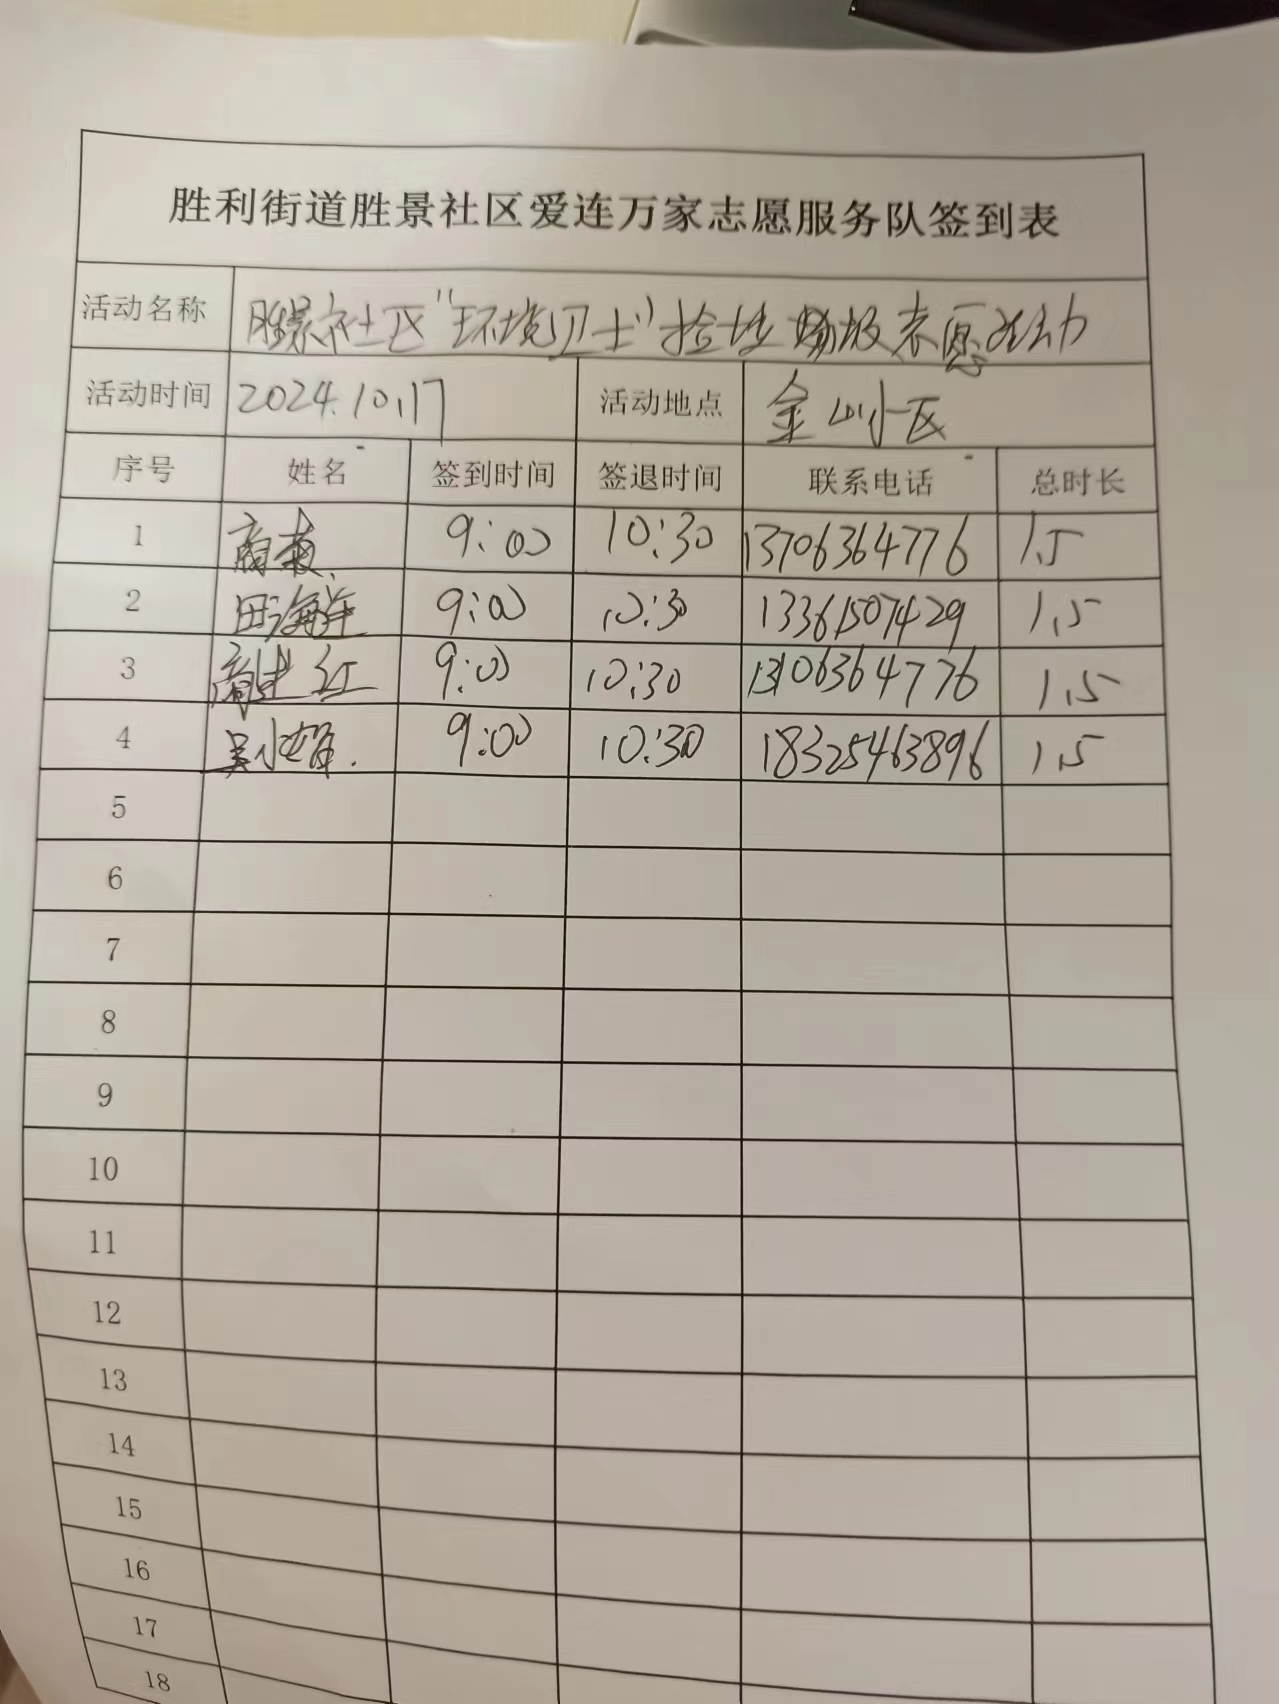 胜利街道胜景社区爱连万家志愿服务队签到表
活动名称 胜景社区"环境卫士"捡拾垃圾志愿活动
活动时间 2024.10.17 活动地点 金山小区
序号 姓名 签到时间 签退时间 联系电话 总时长
1 商菊 9:00 10:30 13706364776 1.5
2 田海莲 9:00 10:30 13361507429 1.5
3 商建红 9:00 10:30 13106364776 1.5
4 吴小娟 9:00 10:30 18325463896 1.5
5
6
7
8
9
10
11
12
13
14
15
16
17
18